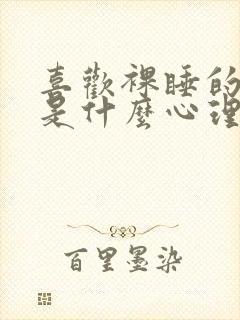 喜歡裸睡的
是什麼心理
百里墨染